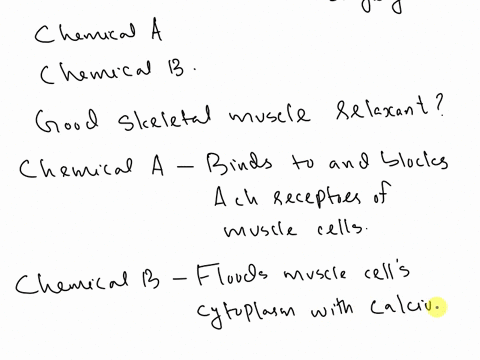 Chemical A
Chemical B.
Good skeletal muscle relaxant?
Chemical A – Binds to and blocks
Ach receptors of
muscle cells.
Chemical B – Floods muscle cell's
cytoplasm with calciu